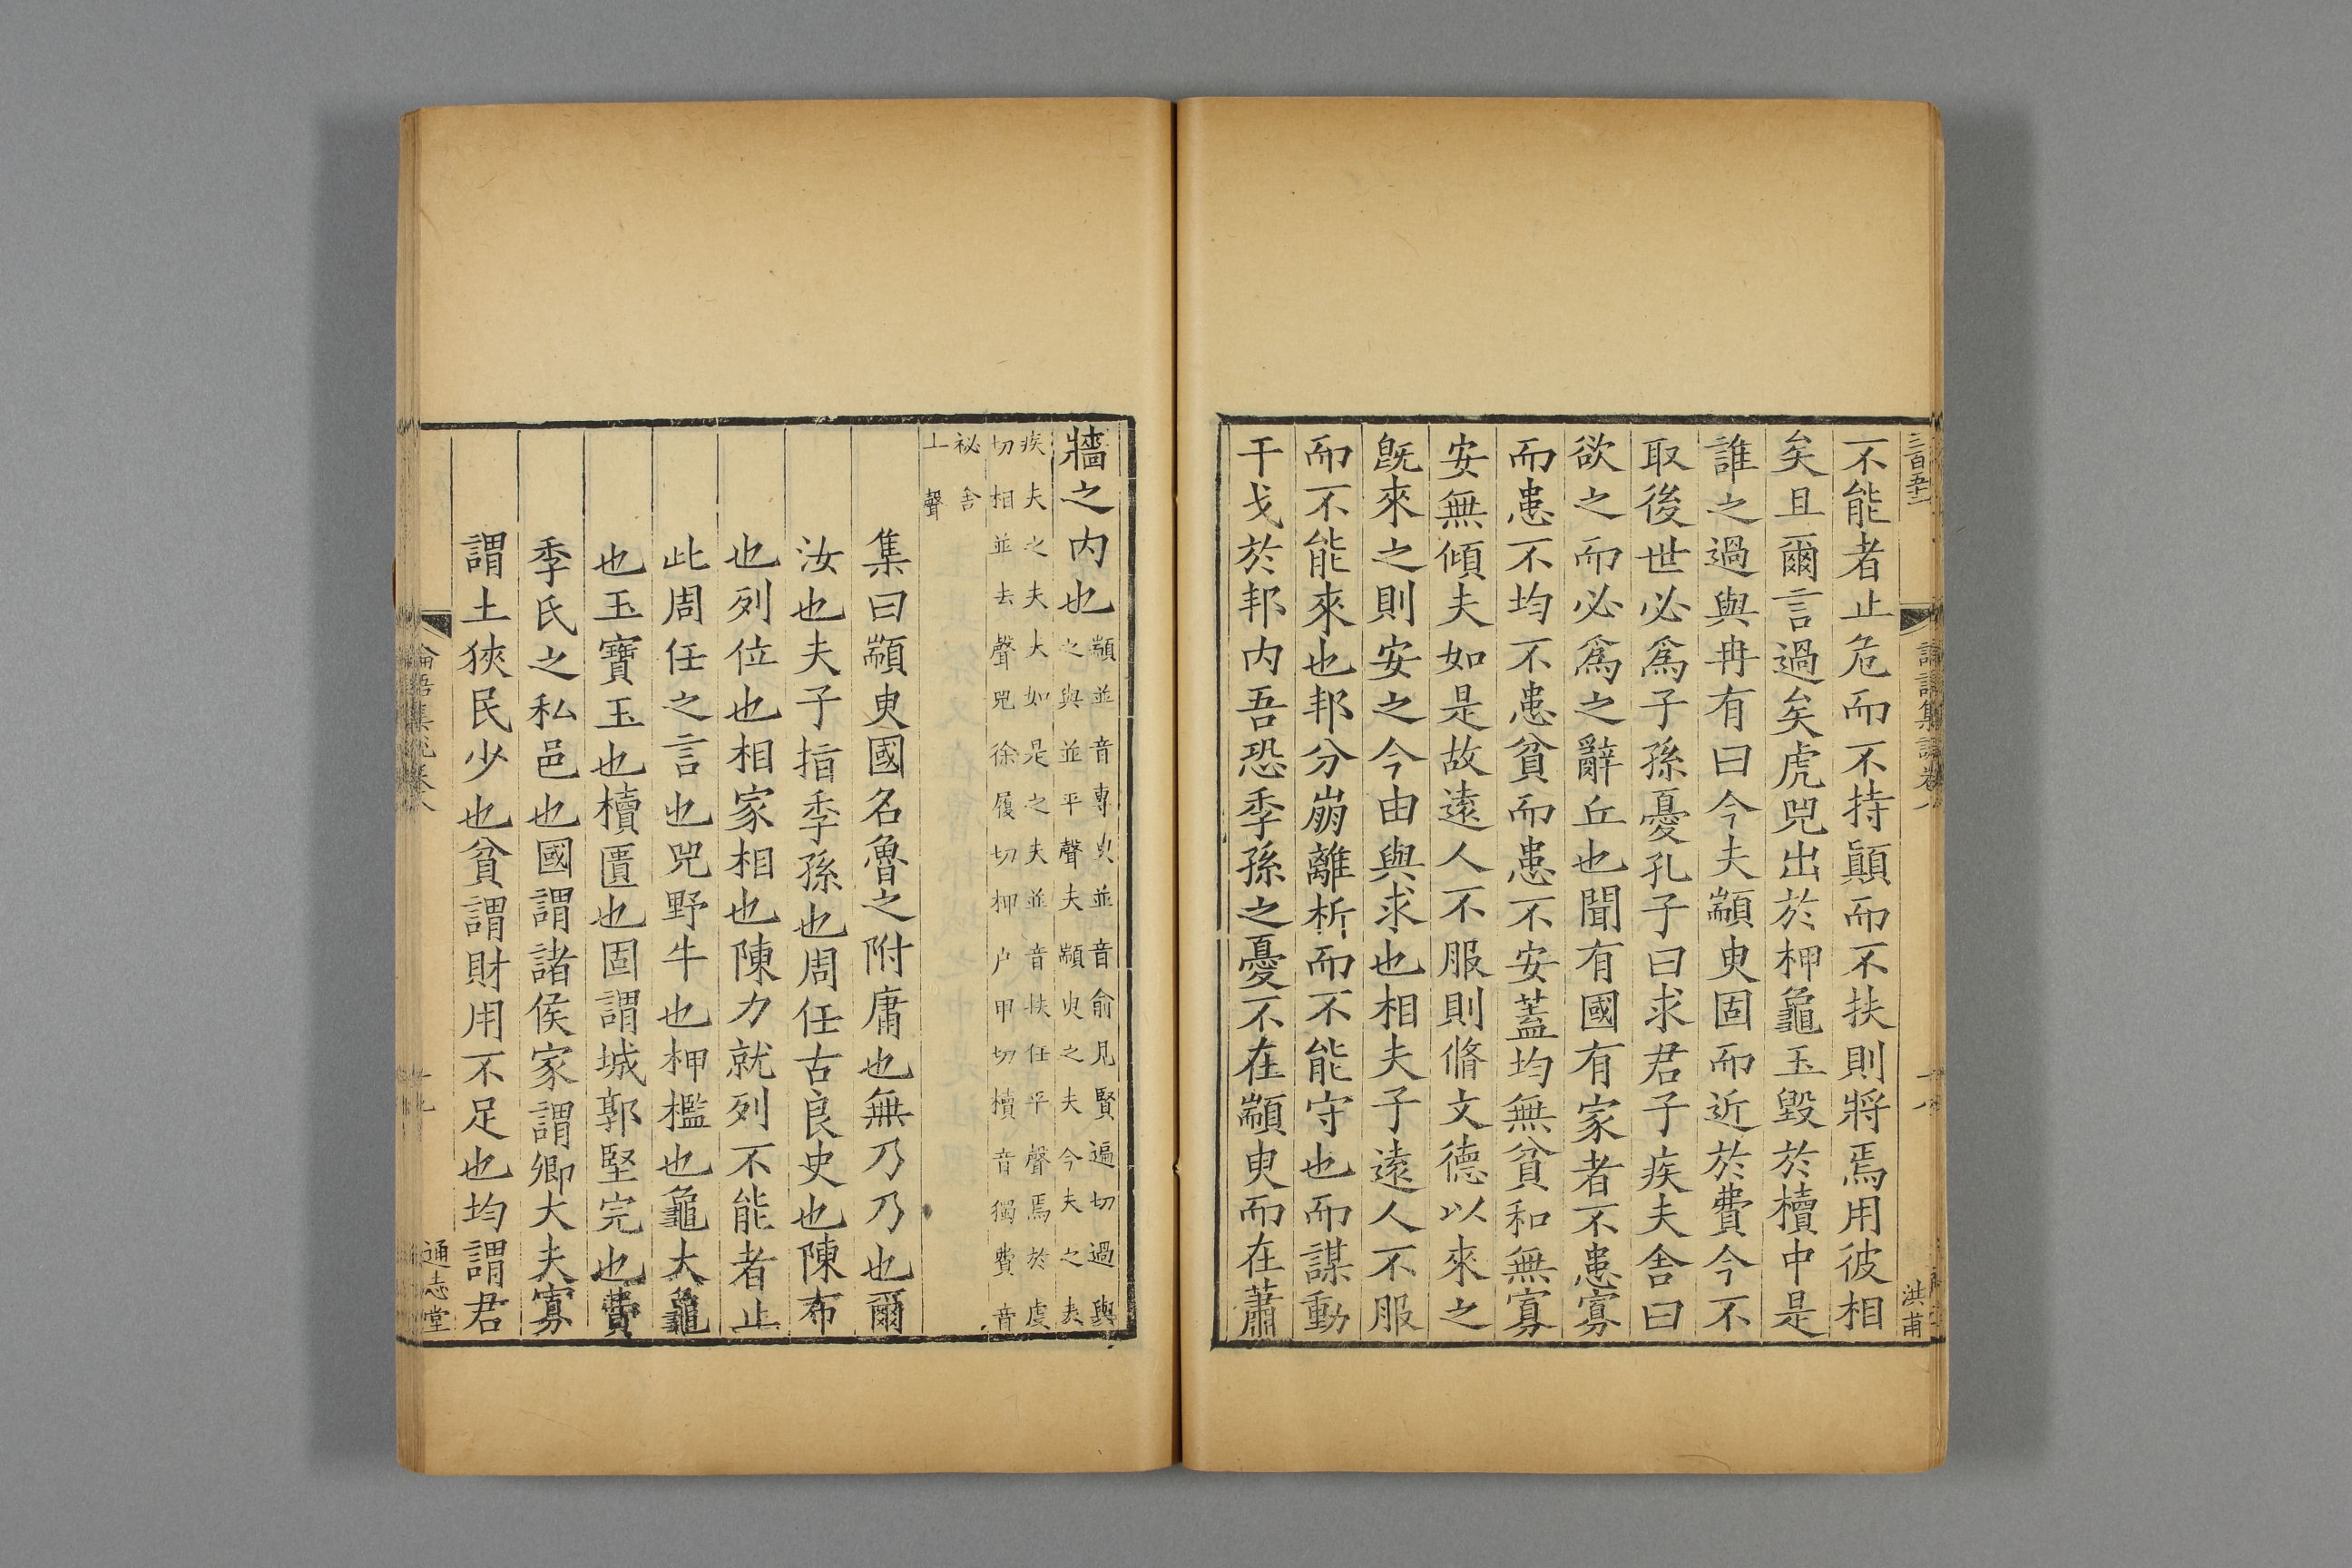 三百五十二
不能者止危而不持顚而不扶則將焉用彼相
矣且爾言過矣虎兕出於柙龜玉毀於櫝中是
誰之過與冉有曰今夫顓臾固而近於費今不
取後世必爲子孫憂孔子曰求君子疾夫舍曰
欲之而必爲之辭丘也聞有國有家者不患寡
而患不均不患貧而患不安蓋均無貧和無寡
安無傾夫如是故遠人不服則脩文德以來之
旣來之則安之今由與求也相夫子遠人不服
而不能來也邦分崩離析而不能守也而謀動
干戈於邦内吾恐季孫之憂不在顓臾而在蕭
洪甫
牆之内也
顓並音專臾並音俞見賢遍切過與
之與並平聲夫顓臾之夫今夫之夫
疾夫之夫大如是之夫並音扶任平聲焉於虔
切相並去聲兕徐履切柙户甲切櫝音獨費音
祕舍
上聲
集曰顓臾國名魯之附庸也無乃乃也爾
汝也夫子指季孫也周任古良史也陳布
也列位也相家相也陳力就列不能者止
此周任之言也兕野牛也柙檻也龜大龜
也玉寶玉也櫝匱也固謂城郭堅完也費
季氏之私邑也國謂諸侯家謂卿大夫寡
謂土狹民少也貧謂財用不足也均謂君
論語集説卷八
十九
通志堂